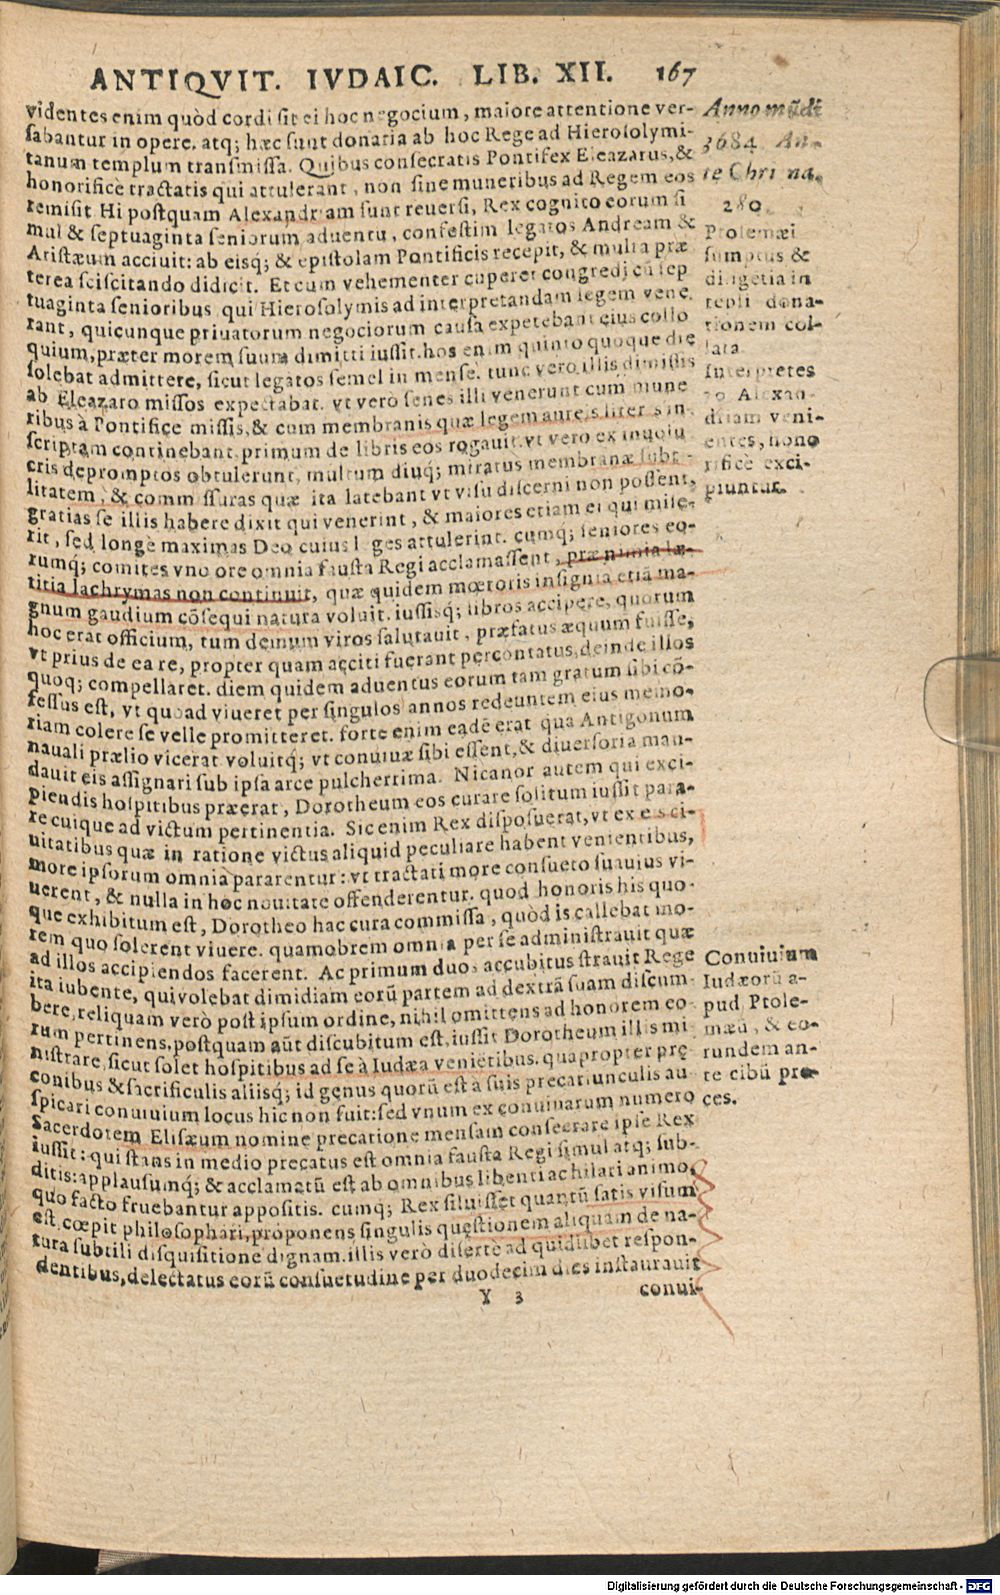 ANTIQVIT. IVDAIC. LIB. XII. 167
videntes enim quòd cordi sit ei hoc negocium, maiore attentione ver-
sabantur in opere. atq; hæc sunt donaria ab hoc Rege ad Hierosolymi-
tanum templum transmissa. Quibus consecratis Pontifex Eleazarus, &
honorifice tractatis qui attulerant, non sine muneribus ad Regem eos
remisit Hi postquam Alexandriam sunt reuersi, Rex cognito eorum si
mul & septuaginta seniorum aduentu, confestim legatos Andream &
Aristæum acciuit: ab eisq; & epistolam Pontificis recepit, & multa præ
terea sciscitando didicit. Et cum vehementer cuperet congredi cū sep
tuaginta senioribus qui Hierosolymis ad interpretandam legem vene.
rant, quicunque priuatorum negociorum causa expetebant eius collo
quium, præter morem suum dimitti iussit. hos enim quinto quoque die
solebat admittere, sicut legatos semel in mense. tunc vero illis dimissis
ab Eleazaro missos expectabat. vt vero senes illi venerunt cum mune
ribus à Pontifice missis, & cum membranis quæ legem aureis literis in-
scriptam continebant, primum de libris eos rogauit. vt vero ex inuolu
cris depromptos obtulerunt, multum diuq; miratus membranæ subti-
litatem, & commissuras quæ ita latebant vt visu discerni non possent,
gratias se illis habere dixit qui venerint, & maiores etiam ei qui mise-
rit, sed longè maximas Deo cuius leges attulerint. cumq; seniores eo-
rumq; comites vno ore omnia fausta Regi acclamassent, præ nimia læ-
titia lachrymas non continuit, quæ quidem mœroris insignia etiā ma-
gnum gaudium cōsequi natura voluit. iussisq; libros accipere, quorum
hoc erat officium, tum demum viros salutauit, præfatus æquum fuisse,
vt prius de ea re, propter quam acciti fuerant percontatus, deinde illos
quoq; compellaret. diem quidem aduentus eorum tam gratum sibi cō-
fessus est, vt quoad viueret per singulos annos redeuntem eius memo-
riam colere se velle promitteret. forte enim eadē erat qua Antigonum
nauali prælio vicerat voluitq; vt conuiuæ sibi essent, & diuersoria man-
dauit eis assignari sub ipsa arce pulcherrima. Nicanor autem qui exci-
piendis hospitibus præerat, Dorotheum eos curare solitum iussit para-
re cuique ad victum pertinentia. Sic enim Rex disposuerat, vt ex eis ci-
uitatibus quæ in ratione victus aliquid peculiare habent venientibus,
more ipsorum omnia pararentur: vt tractati more consueto suauius vi-
uerent, & nulla in hoc nouitate offenderentur. quod honoris his quo-
que exhibitum est, Dorotheo hac cura commissa, quòd is callebat mo-
rem quo solerent viuere. quamobrem omnia per se administrauit quæ
ad illos accipiendos facerent. Ac primum duos accubitus strauit Rege
ita iubente, qui volebat dimidiam eorū partem ad dextrā suam discum-
bere, reliquam verò post ipsum ordine, nihil omittens ad honorem eo
rum pertinens. postquam aūt discubitum est, iussit Dorotheum illis mi
nistrare, sicut solet hospitibus ad se à Iudæa veniētibus. quapropter præ
conibus & sacrificulis aliisq; id genus quorū est à suis precatiunculis au
spicari conuiuium locus hic non fuit: sed vnum ex conuiuarum numero
Sacerdotem Elisæum nomine precatione mensam consecrare ipse Rex
iussit: qui stans in medio precatus est omnia fausta Regi simul atq; sub-
ditis: applausumq; & acclamatū est ab omnibus libenti ac hilari animo,
quo facto fruebantur appositis. cumq; Rex siluisset quantū satis visum
est, cœpit philosophari, proponens singulis quæstionem aliquam de na-
tura subtili disquisitione dignam. illis verò disertè ad quidlibet respon-
dentibus, delectatus eorū consuetudine per duodecim dies instaurauit
Y 3 conui-
Anno mūdi
3684 An-
te Chri na.
280.
Ptolemæi
sumptus &
diligētia in
tēpli dona-
tionem col-
lata.
Interpretes
70 Alexan-
driam veni-
entes, hono
rificè exci-
piuntur.
Conuiuium
Iudæorū a-
pud Ptole-
mæū, & eo-
rundem an-
te cibū pre-
ces.
Digitalisierung gefördert durch die Deutsche Forschungsgemeinschaft - DFG